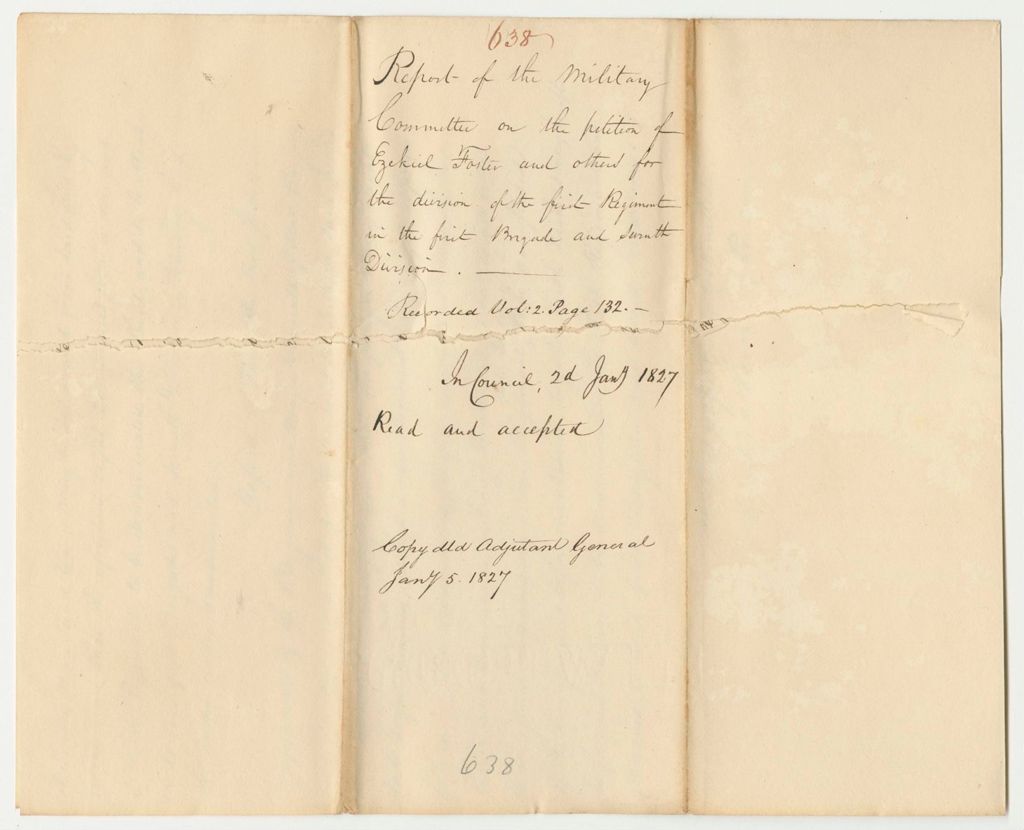 638
Report of the Military
Committee on the petition of
Ezekiel Foster and others for
the division of the first Regiment
in the first Brigade and Seventh
Division.
Recorded Vol: 2. Page 132.
In Council, 2d Jany 1827
Read and accepted
Copy dld Adjutant General
Jany 5. 1827
638